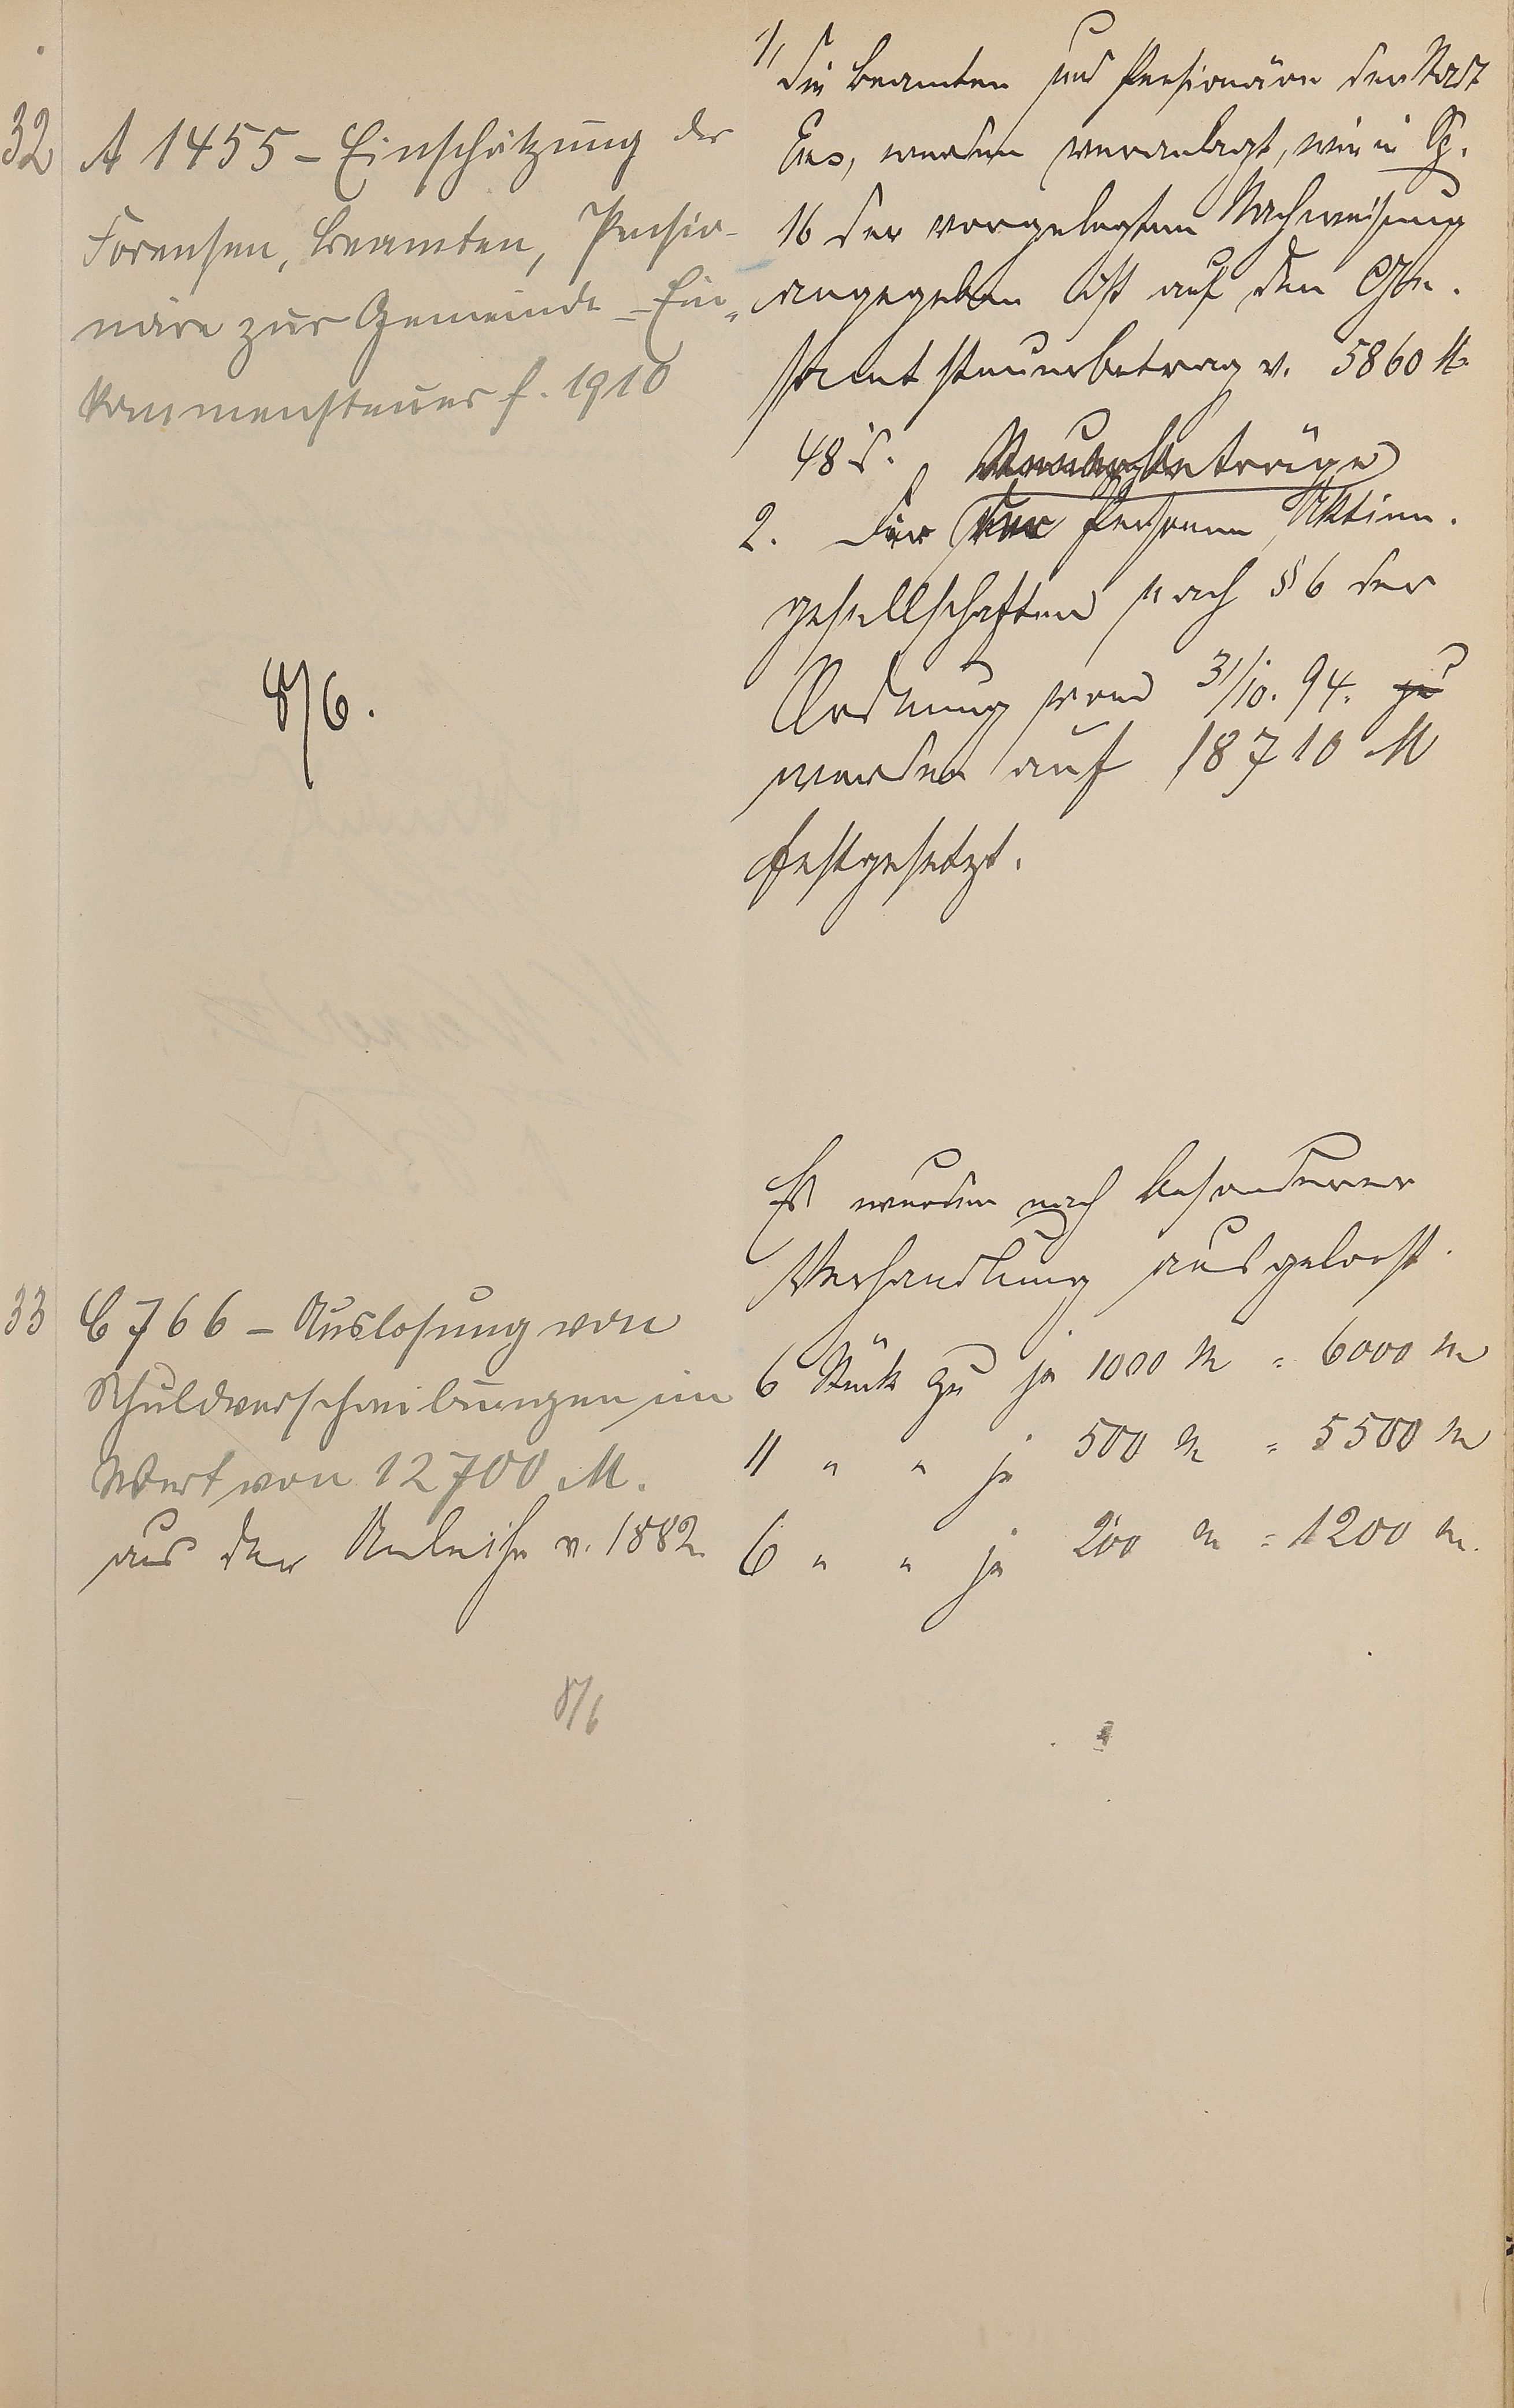 32
A 1455 - Einschätzung der
Forensen, Beamten, Pensio-
näre zur Gemeinde-Ein-
kommensteuer f. 1910
8/6.
1, Die Beamten und Pensionäre der Stadt
Ems, werden veranlagt, wie in Sp.
16 der vorgelegten Nachweisung
angegeben ist auf den Ge-
samtsteuerbetrag v. 5860 M
48 d. Steuerbeträge
2. Die der Personen, Aktien-
gesellschaften nach § 6 der
Ordnung vom 31/10. 94. zu
werden auf 18710 M
festgesetzt.
33
C 766 - Auslosung von
Schuldverschreibungen im
Wert von 12700 M.
aus der Anleihe v. 1882
8/6
Es wurden nach besonderer
Verhandlung ausgelost.
6 Stück zu je 1000 M = 6000 M
11 " " je 500 M = 5500 M
6 " " je 200 M = 1200 M.